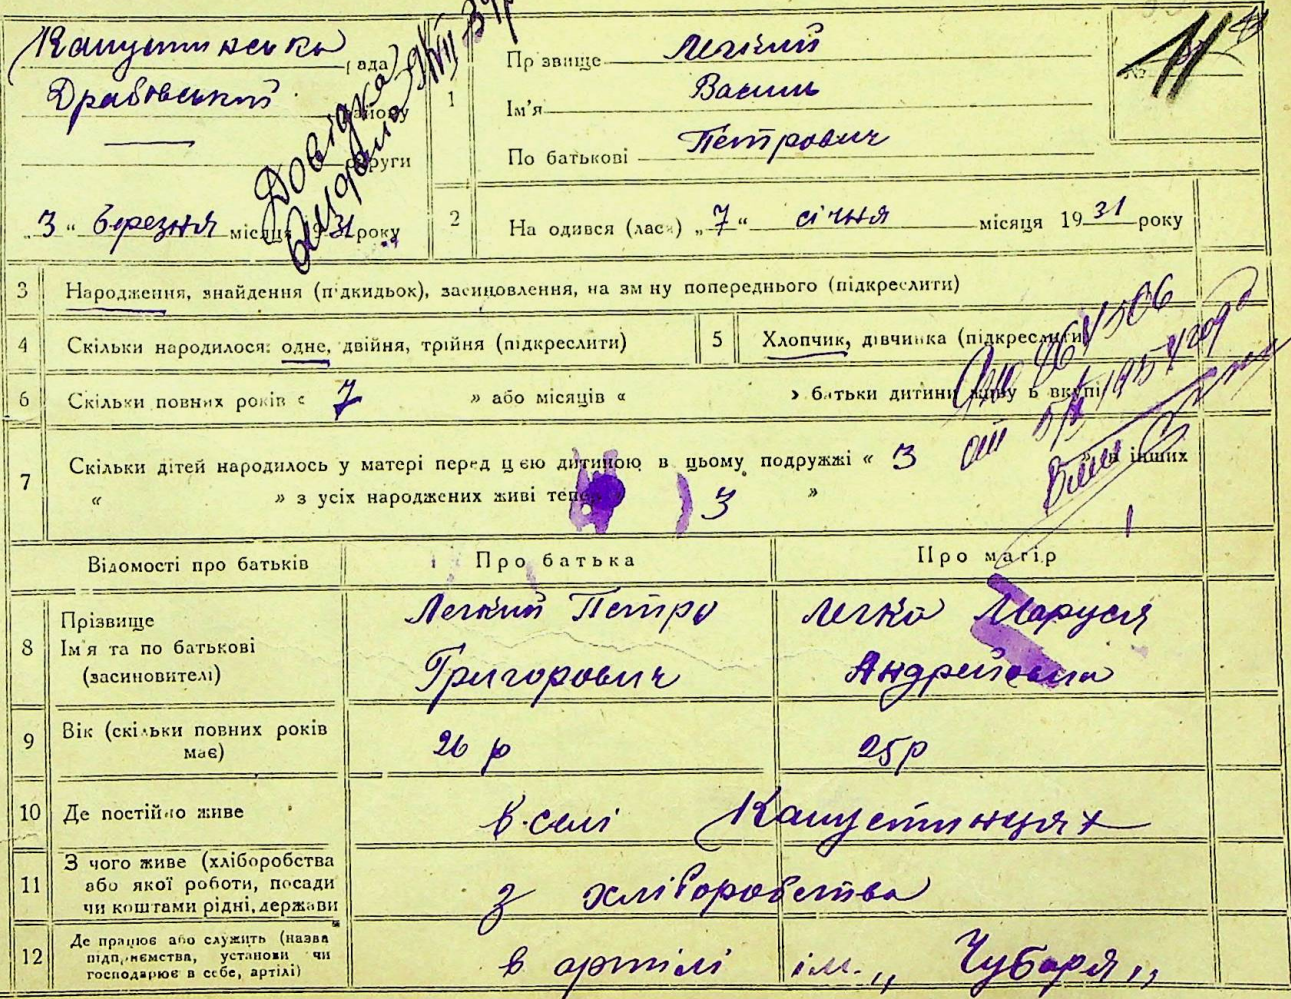 Капустинська рада
Драбівський району
округи
„3“ березня місяця 1931 року
Довідка
видана
№ 11
1
Прізвище Легкий
Ім'я Василь
По батькові Петрович
2
Народився (лась) „7“ січня місяця 1931 року
3 Народження, знайдення (підкидьок), засиновлення, на зміну попереднього (підкреслити)
4 Скільки народилося: одне, двійня, трійня (підкреслити)
5 Хлопчик, дівчинка (підкреслити)
6 Скільки повних років « 7 » або місяців « » батьки дитини живуть вкупі
от 5/X 1954 года
7 Скільки дітей народилось у матері перед цією дитиною в цьому подружжі « 3 » в інших
« » з усіх народжених живі тепер « 3 »
Відомості про батьків Про батька Про матір
8 Прізвище Ім'я та по батькові (засновителі)
Легкий Петро Григорович
Легка Маруся Андреївна
9 Вік (скільки повних років має) 26 р 25р
10 Де постійно живе в селі Капустинцях
11 З чого живе (хліборобства або якої роботи, посади чи коштами рідні, держави
з хліборобства
12 Де працює або служить (назва підприємства, установи чи господарює в себе, артілі)
в артілі ім. „Чубаря„